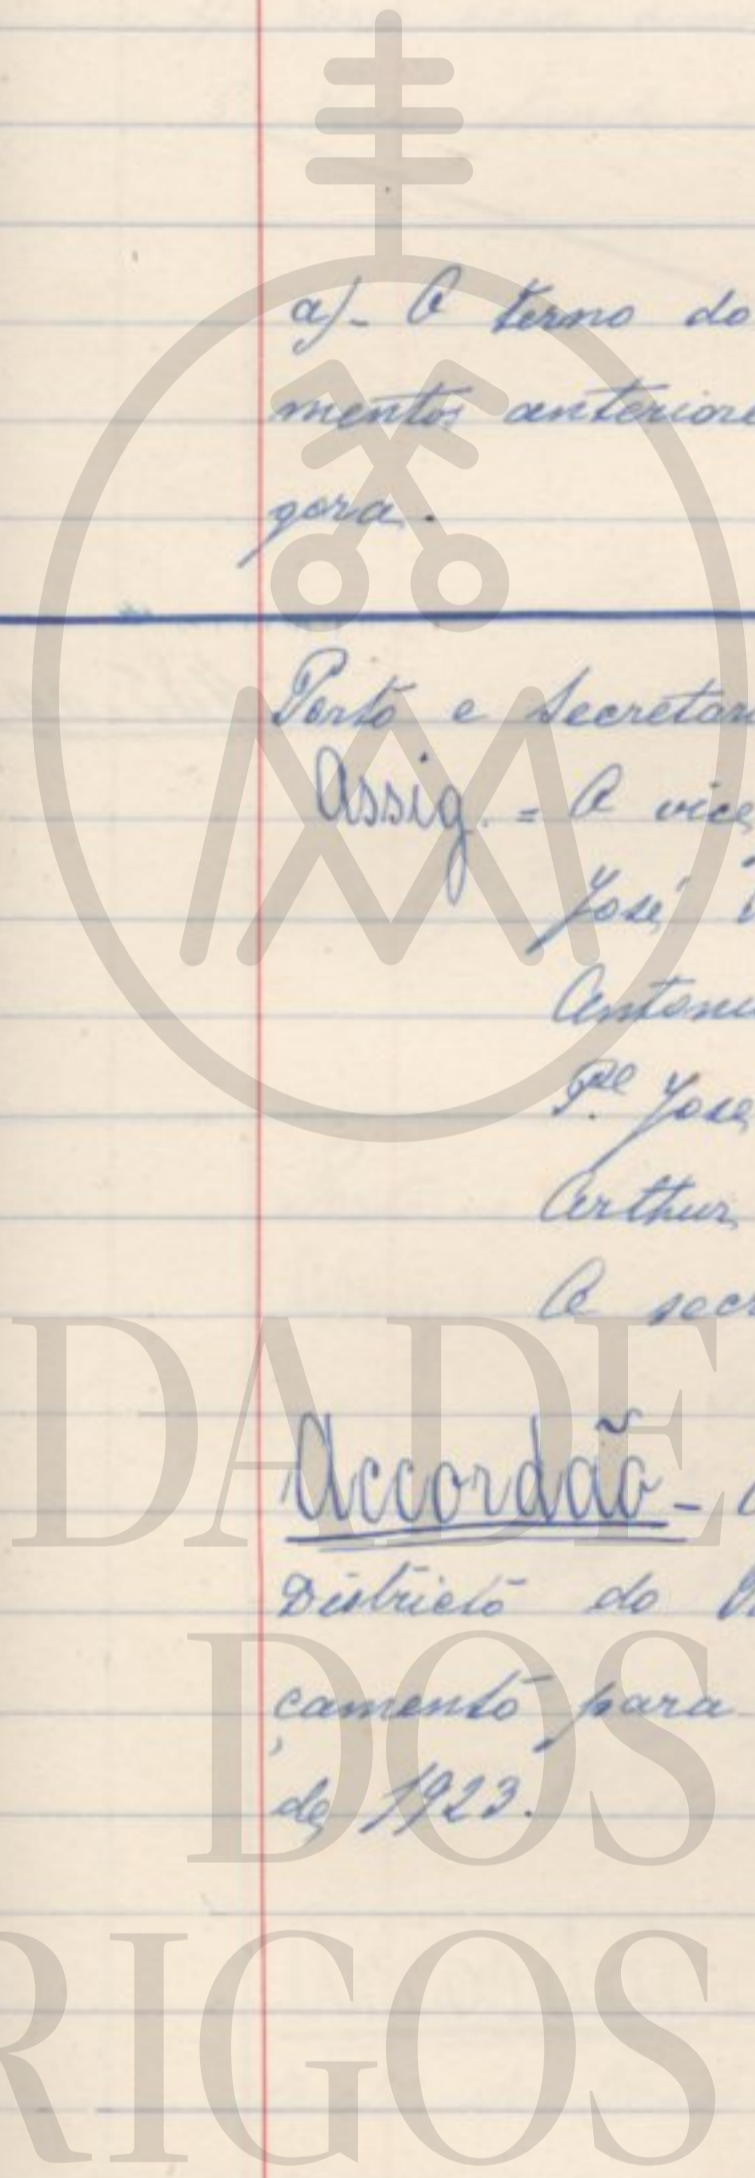 a)- O termo do
mentos anteriore
gora.
Porto e Secretari
Assig. = O vice
José
Antoni
P.e José
Arthur
O secr
Accordão -
Districto do
çamento para
de 1923.
DADE
DOS
RIGOS